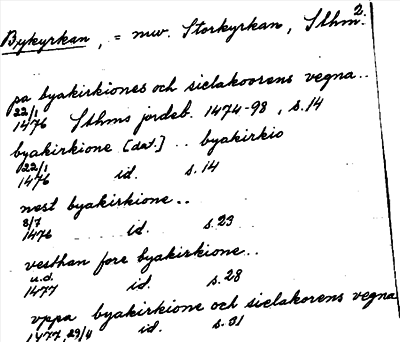 2.
Bykyrkan, = nuv. Storkyrkan, Sthm.
pa byakirkiones och sielakoorens vegna..
22/1
1476 Sthms jordeb. 1474-98, s.14
byakirkione [dat.] .. byakirkio
22/1
1476 id. s.14
nest byakirkione..
8/7
1476 id. s.23
vesthan fore byakirkione..
u.d.
1477 id. s.28
vppa byakirkione och sielakorens vegna
1477, 29/4 id. s.31